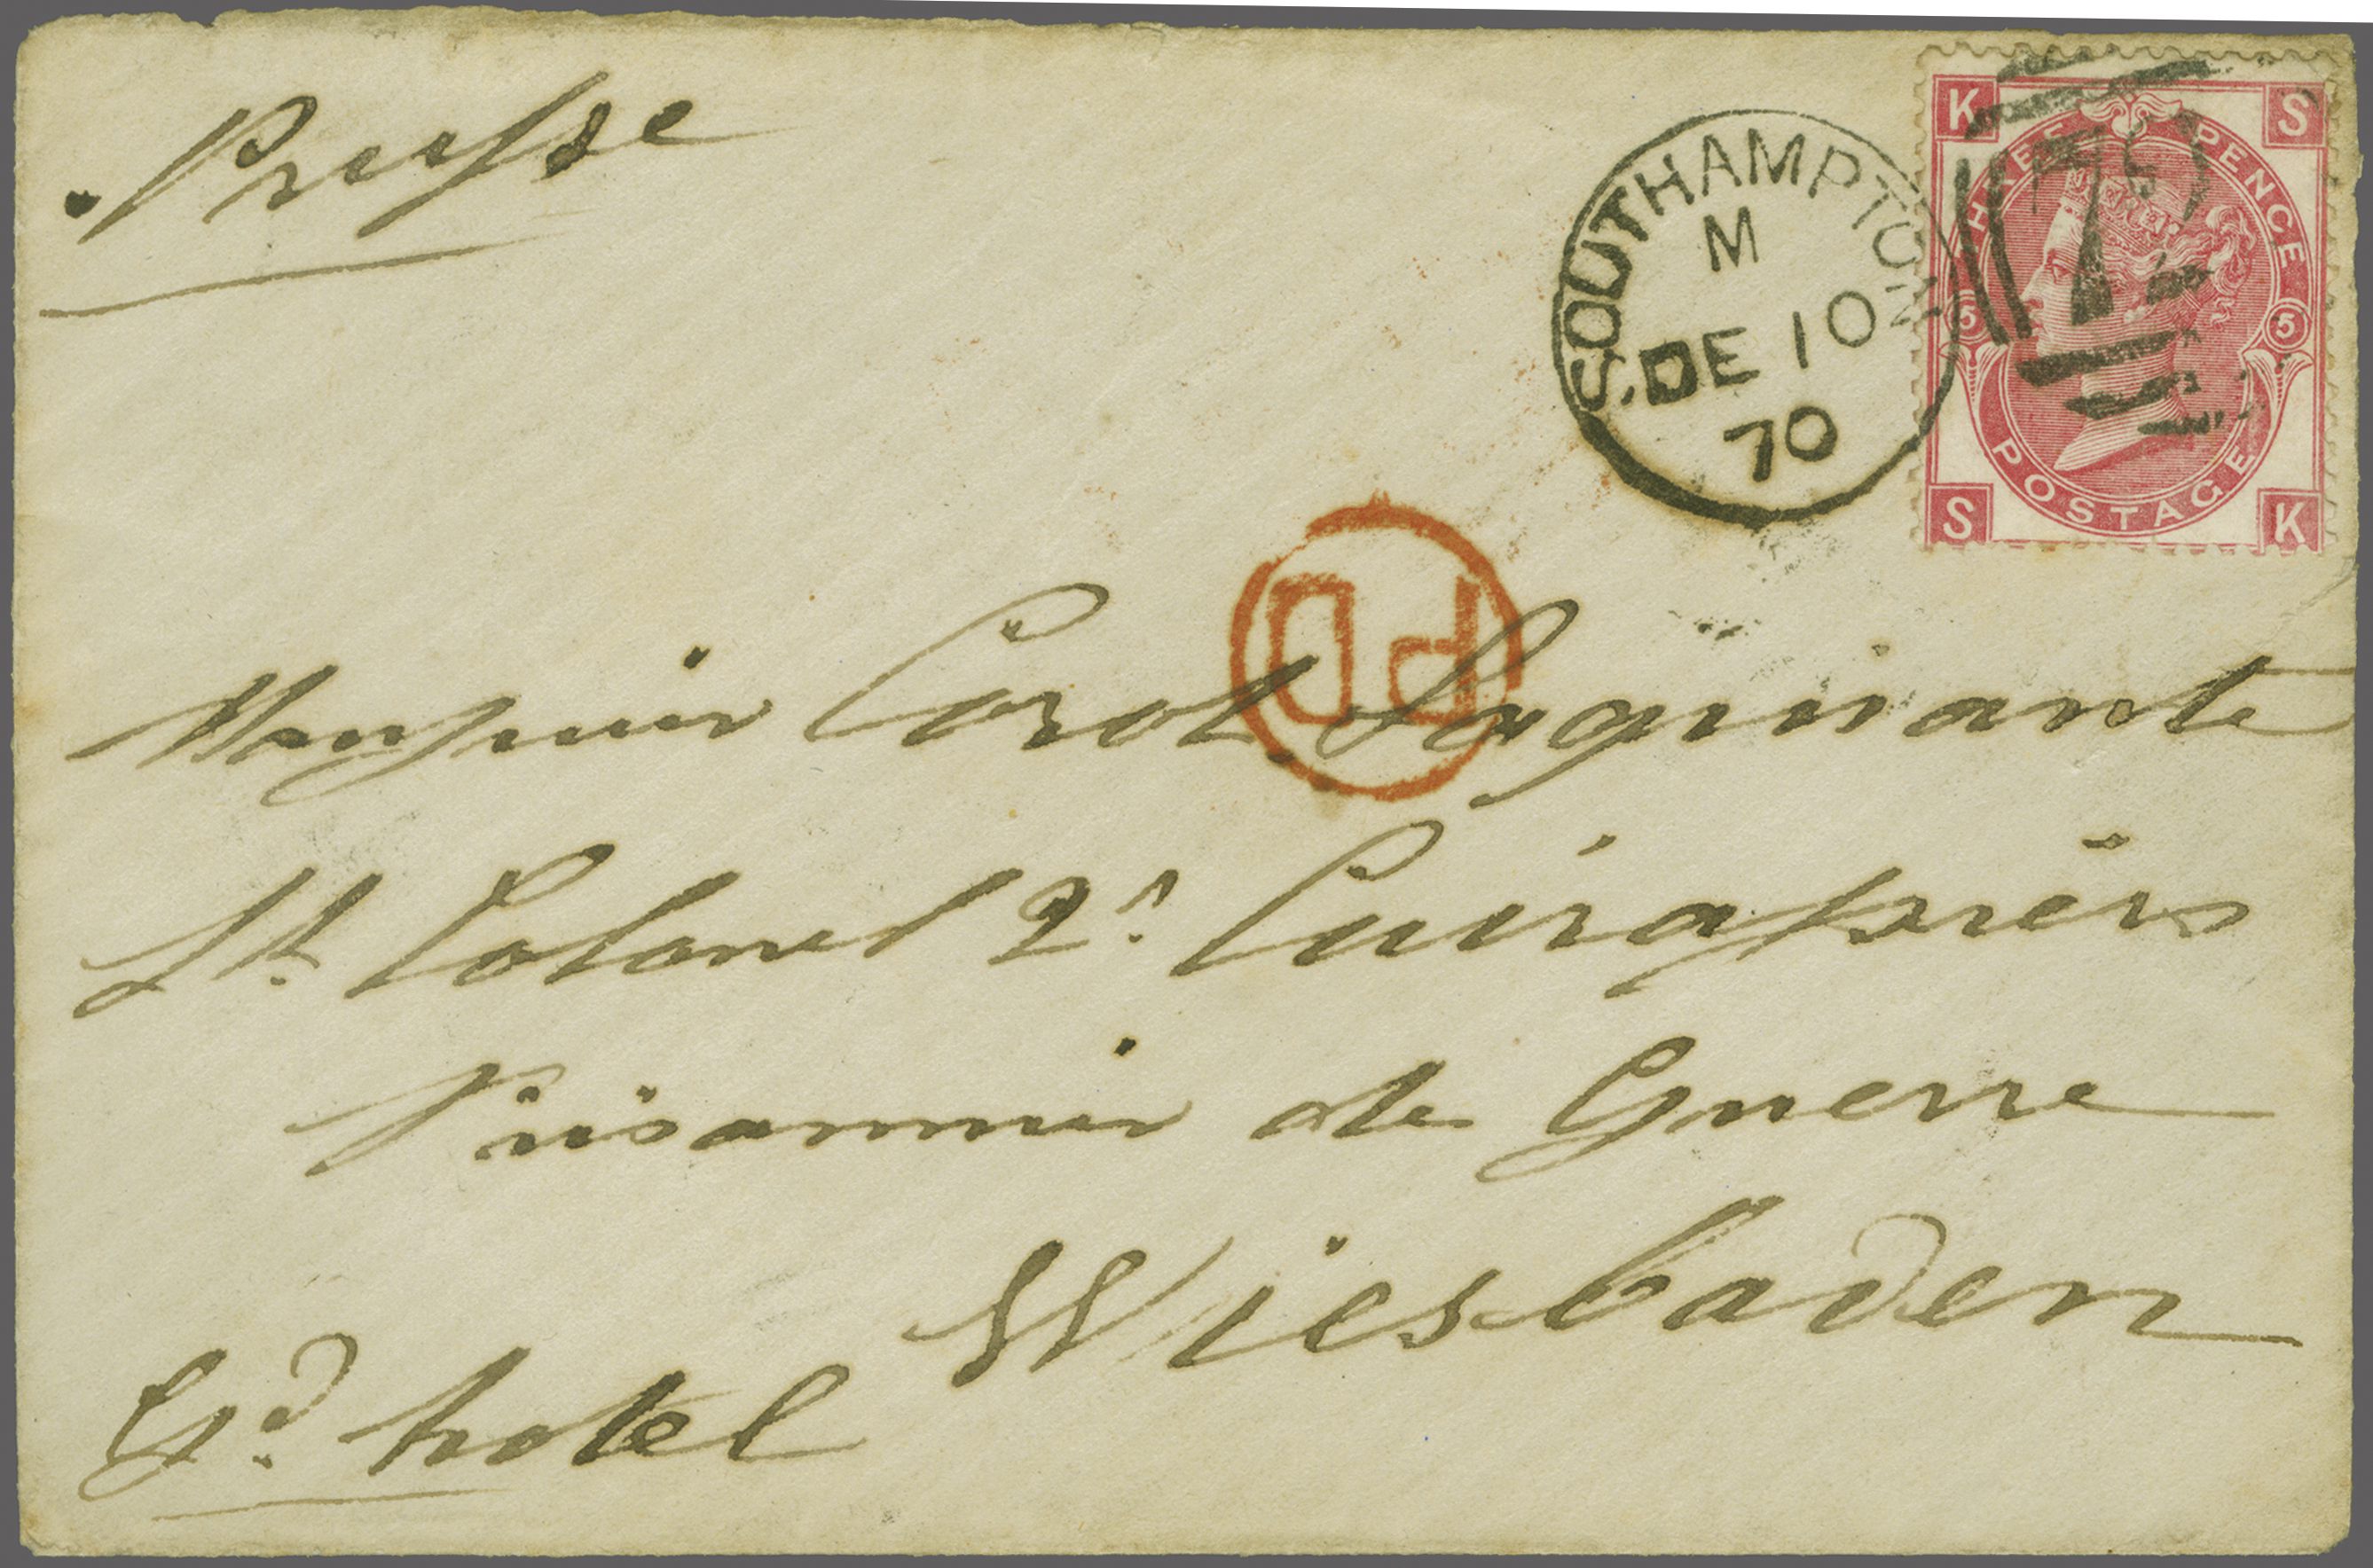 Prusse
SOUTHAMPTON
M
DE 10
70
K S
THREE PENCE
5 5
POSTAGE
S K
PD
Monsieur Corot Laquiante
Lt. Colonel 2e. Cuirassiers
Prisonnier de Guerre
Wiesbaden
Gd. hotel